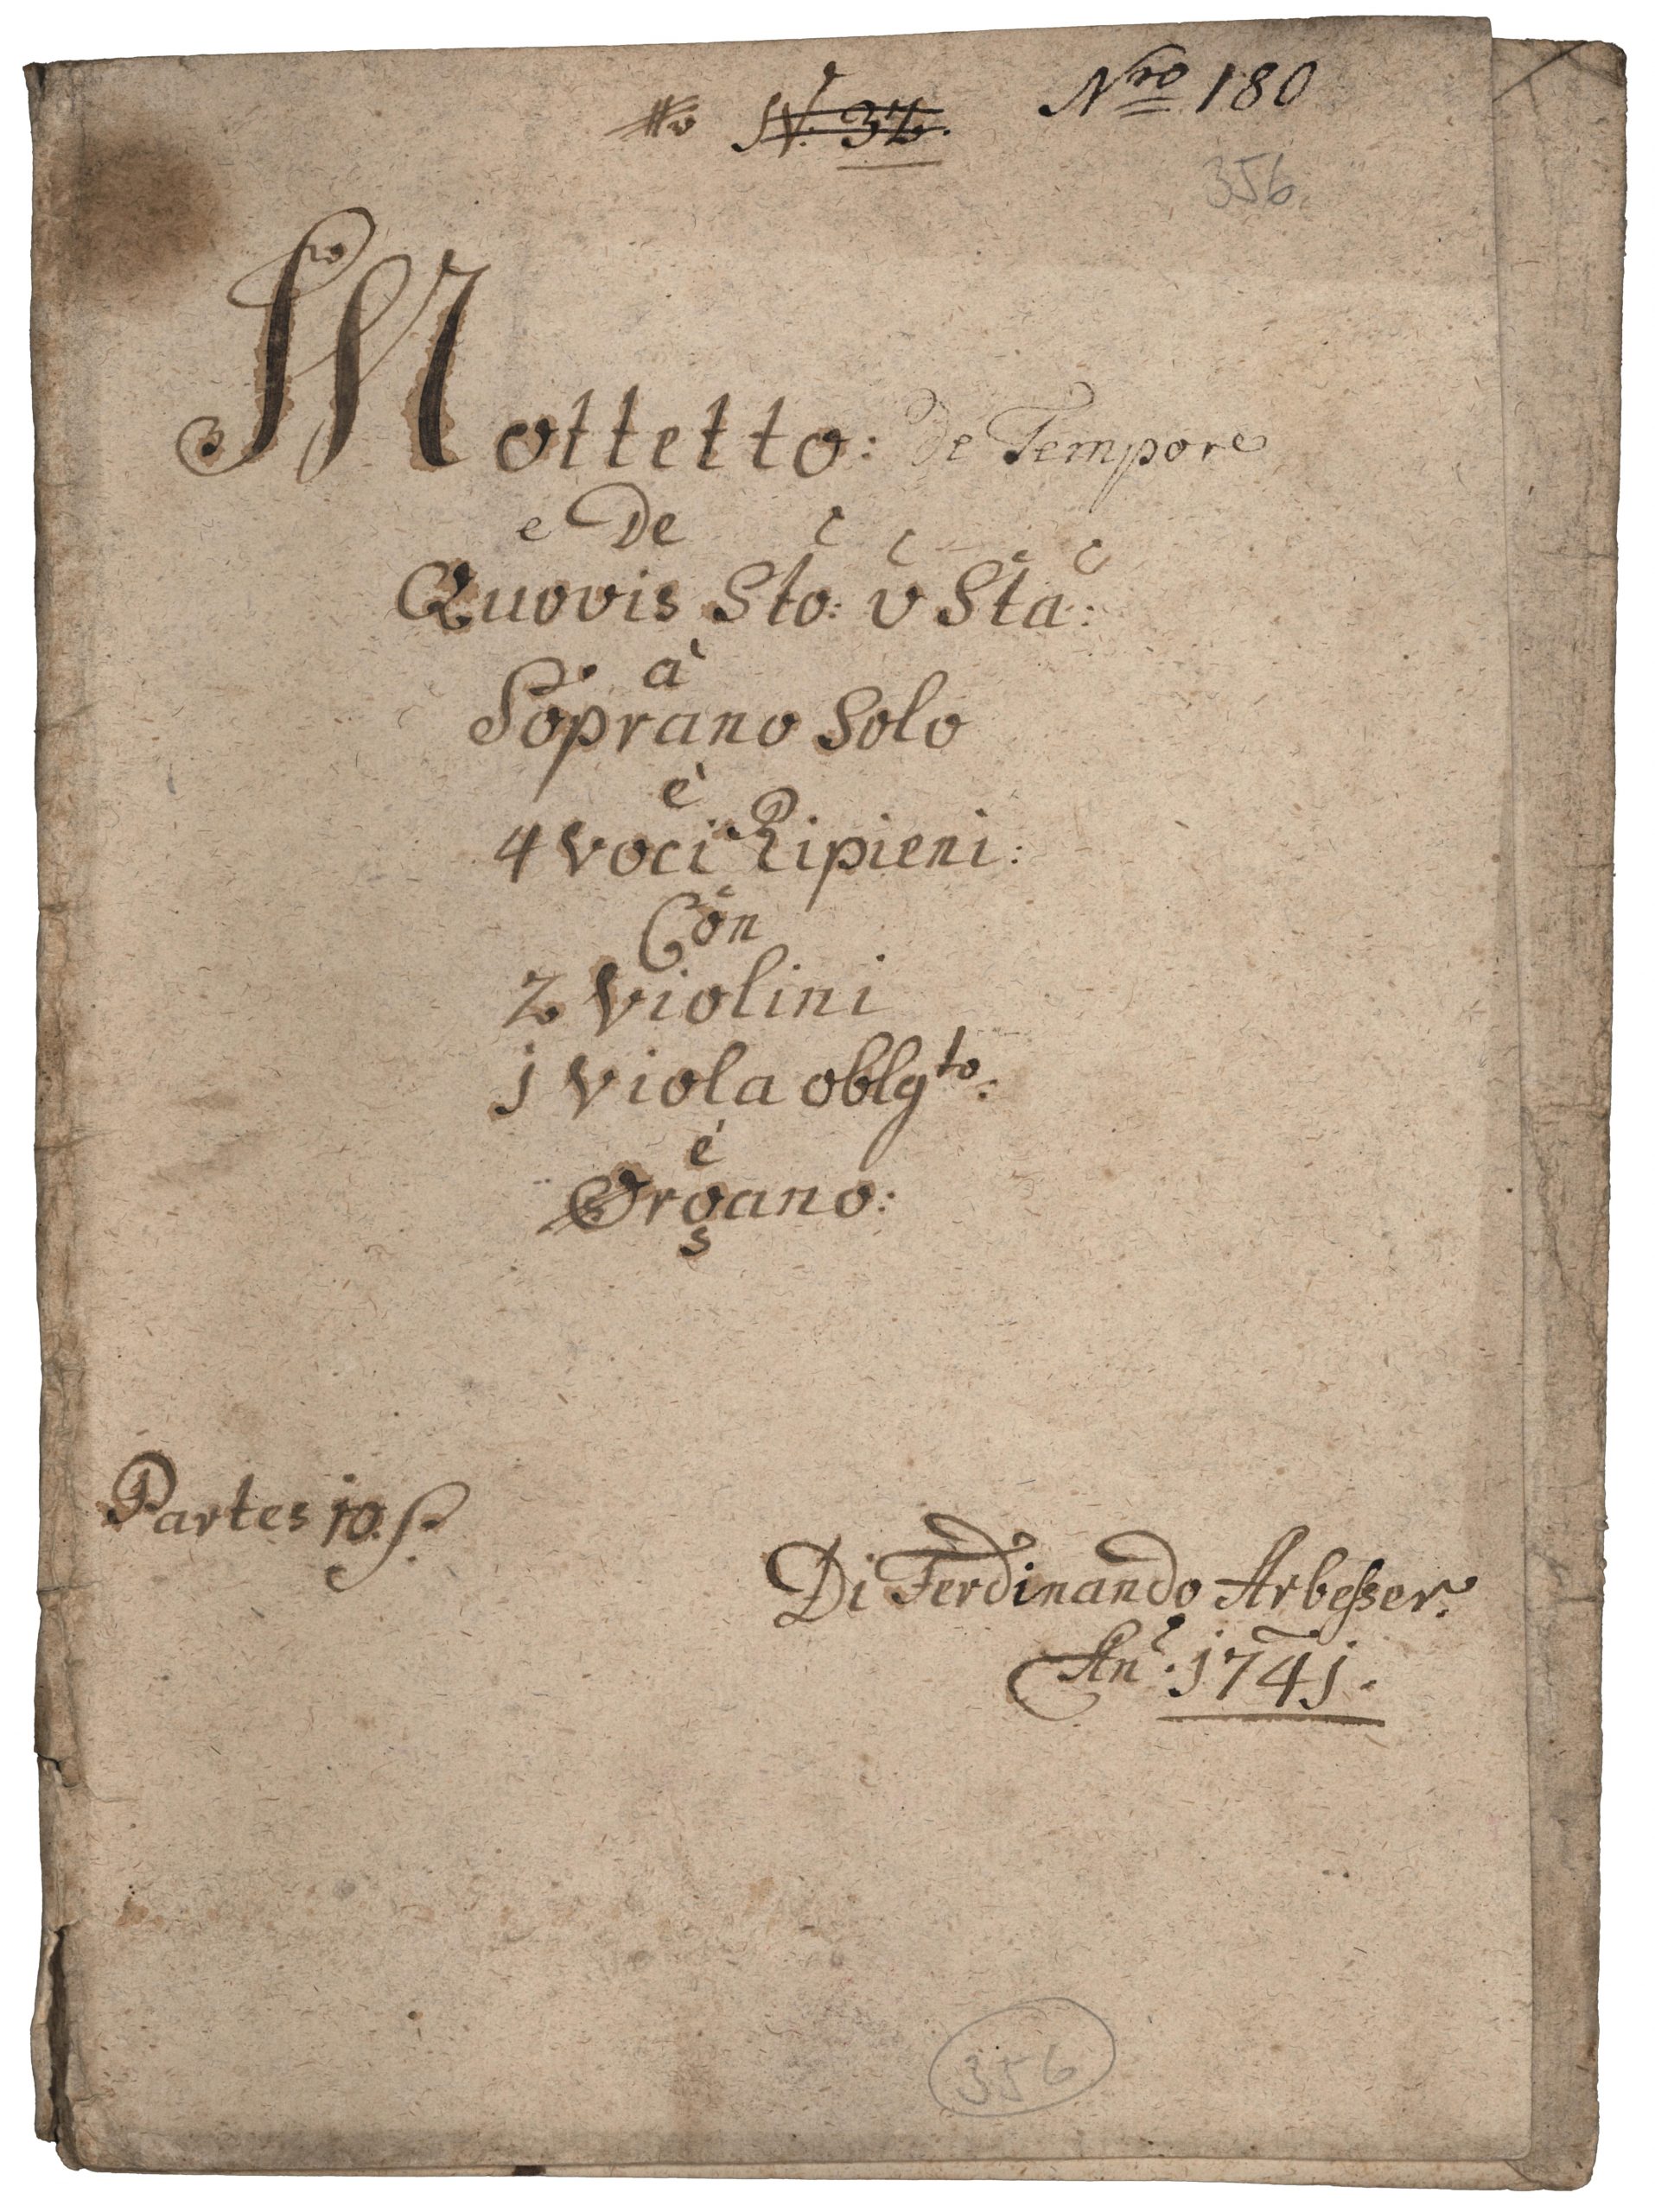 N. 32. Nro 180
356
Mottetto: de Tempore
e De
Quovis Sto: v Sta:
à
Soprano Solo
è
4 Voci Ripieni:
Con
2 Violini
1 Viola oblgto:
è
Organo:
Partes 10.
Di Ferdinando Arbesser.
An: 1741.
356